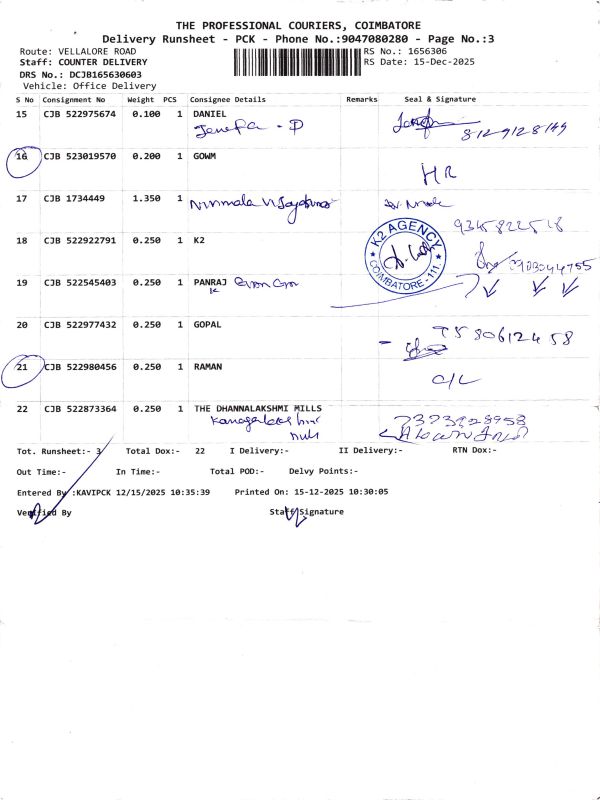 THE PROFESSIONAL COURIERS, COIMBATORE
Delivery Runsheet - PCK - Phone No.:9047080280 - Page No.:3
Route: VELLALORE ROAD RS No.: 1656306
Staff: COUNTER DELIVERY RS Date: 15-Dec-2025
DRS No.: DCJB165630603
Vehicle: Office Delivery
S No Consignment No Weight PCS Consignee Details Remarks Seal & Signature
15 CJB 522975674 0.100 1 DANIEL
Jenefa - D
16 CJB 523019570 0.200 1 GOWM
HR
17 CJB 1734449 1.350 1
Nirmala
K2 AGENCY
COIMBATORE - 111.
18 CJB 522922791 0.250 1 K2
19 CJB 522545403 0.250 1 PANRAJ
K
20 CJB 522977432 0.250 1 GOPAL
21 CJB 522980456 0.250 1 RAMAN
C/L
22 CJB 522873364 0.250 1 THE DHANNALAKSHMI MILLS
7373928958
Tot. Runsheet:- 3 Total Dox:- 22 I Delivery:- II Delivery:- RTN Dox:-
Out Time:- In Time:- Total POD:- Delvy Points:-
Entered By :KAVIPCK 12/15/2025 10:35:39 Printed On: 15-12-2025 10:30:05
Verified By Staff Signature